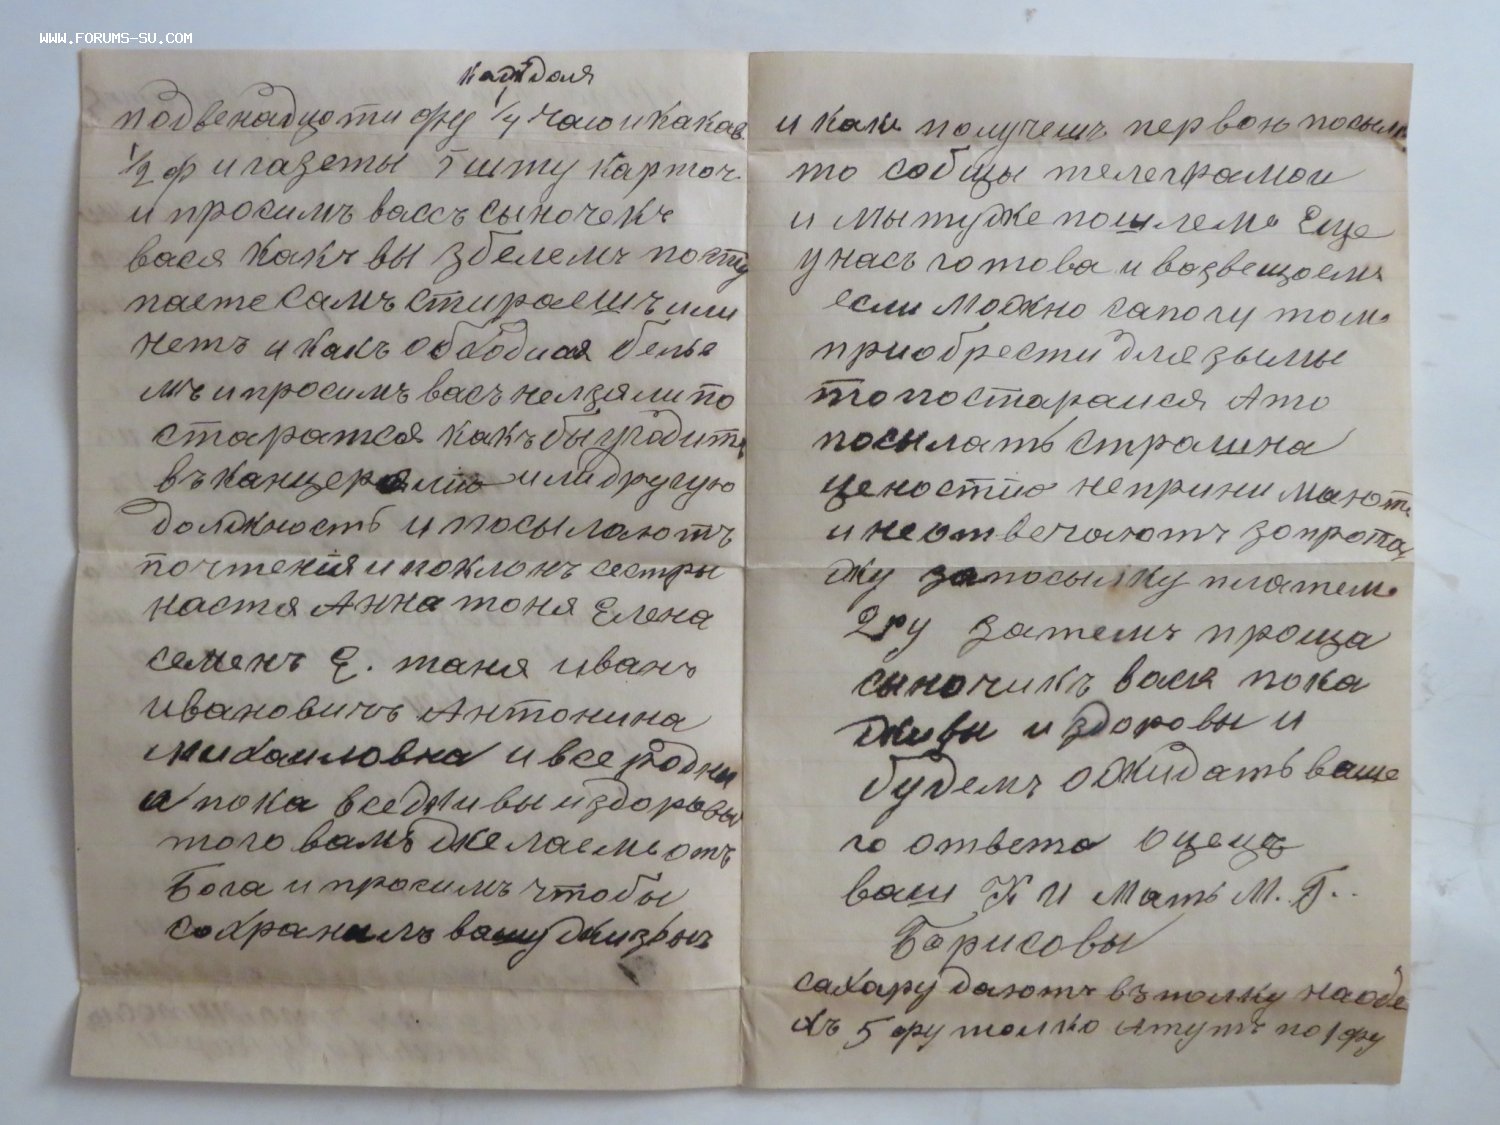 WWW.FORUMS-SU.COM
подвенадцоти фну 1/4 чаю и какав
1/2 ф и газеты 5 шту карточ
и просимъ вассъ сыночекъ
вася какъ вы збелемъ посту
паете самъ стираешъ или
нетъ и какъ обходися белье
мъ и просимъ васъ нелзяли по
старатся какъбы угодить
въ канцерялию или другую
должность и посылаютъ
почтения и поклонъ сестры
настя Анна тоня Елена
семенъ Е. таня иванъ
ивановичъ Антонина
михаиловна и все родни
и пока вседживы издоровы
того вамъ джелаемъ отъ
Бога и просимъ чтобы
сохранилъ вашу джизнь
и как получешъ первою посылк
то собщы телеграмои
и мы тудже пошлемъ Еще
у насъ готова и возвещоемъ
если моджно сапогу томъ
приобрести для зымы
то постараися Ато
посылать страшна
ценостию непринимають
и неотвечаютъ запропа
джу запосылку платемъ
2 ру затемъ проща
сыночикъ вася пока
дживы и здоровы и
будемъ оджидать ваше
го ответа оцецъ
ваш К И Мать М. Г..
Борисовы
сахару даютъ въ полку на обе
хъ 5 фу толко Атутъ по 1 фу